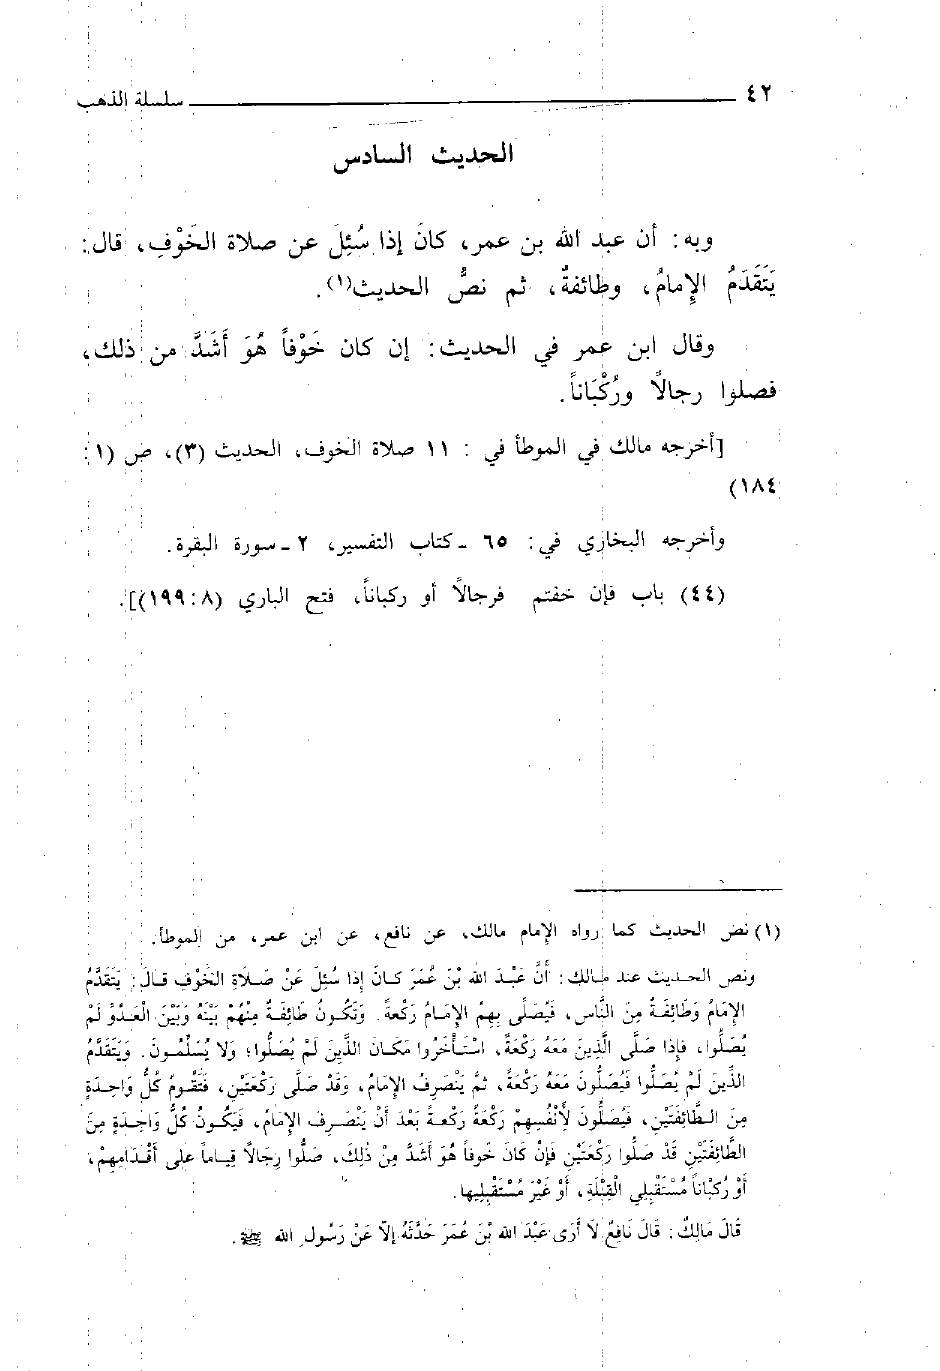 ٤٢ سلسلة الذهب
الحديث السادس
وبه: أن عبد الله بن عمر، كانَ إذا سُئِلَ عن صلاة الخَوْفِ، قال:
يَتَقَدَمُ الإِمامُ، وطائفةٌ، ثم نصُّ الحديث(١).
وقال ابن عمر في الحديث: إن كان خَوْفاً هُوَ أَشَدَّ من ذلك،
فصلوا رجالًا ورُكْبَاناً.
[أخرجه مالك في الموطأ في : ١١ صلاة الخوف، الحديث (٣)، ص (١:
١٨٤)
وأخرجه البخاري في: ٦٥ ـ كتاب التفسير، ٢ ـ سورة البقرة.
(٤٤) باب فإن خفتم فرجالًا أو ركباناً، فتح الباري (٨:١٩٩)].
(١) نص الحديث كما رواه الإمام مالك، عن نافع، عن ابن عمر، من الموطأ.
ونص الحديث عند مالك: أَنَّ عَبْدَ الله بْنَ عُمَرَ كانَ إذا سُئِلَ عَنْ صَلاَةِ الخَوْفِ قالَ: يَتَقَدَّمُ
الإِمَامُ وَطَائِفَةٌ مِنَ النَّاس، فَيُصَلِّى بِهِمُ الإِمَامُ رَكْعَةً. وَتَكُونُ طَائِفَةٌ مِنْهُمْ بَيْنَهُ وَبَيْنَ الْعَدُوِّ لَمْ
يُصَلُّوا، فَإِذا صَلَّى الَّذِينَ مَعَهُ رَكْعَةً، اسْتَأْخَرُوا مَكَانَ الذَّينَ لَمْ يُصَلُّوا؛ وَلا يُسَلِّمُونَ. وَيَتَقَدَّمُ
الَّذِينَ لَمْ يُصَلُّوا فَيُصَلُّونَ مَعَهُ رَكْعَةً، ثمَّ يَنْصَرِفُ الإِمَامُ، وَقَدْ صَلَّى رَكْعَتَيْنِ، فَتَقُومُ كُلُّ وَاحِدَةٍ
مِنَ الطَّائِفَتَيْنِ، فَيُصَلُّونَ لِأَنْفُسِهِمْ رَكْعَةً رَكْعَةً بَعْدَ أَنْ يَنْصَرِفَ الإِمَامُ، فَيَكُونُ كُلُّ وَاحِدَةٍ مِنَ
الطَّائِفَتَيْنِ قَدْ صَلُّوا رَكْعَتَيْنِ فَإِنْ كَانَ خَوفاً هُوَ أَشَدَّ مِنْ ذٰلِكَ، صَلُّوا رِجَالًا قِيَاماً على أَقْدَامِهِمْ،
أَوْ رُكْبَاناً مُسْتَقْبِلِي الْقِبْلَةِ، أَوْ غَيْرَ مُسْتَقْبِلِيها.
قَالَ مَالِكٌ: قَالَ نَافِعٌ لاَ أَرَى عَبْدَ الله بْنَ عُمَرَ حَدَّثَهُ إِلاَّ عَنْ رَسُولِ الله ﷺ.